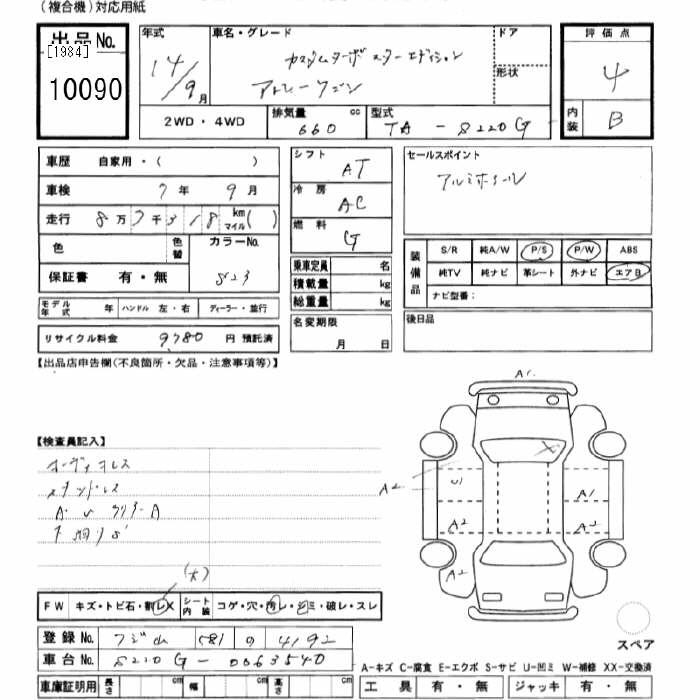 (複合機)対応用紙
出品No.
[1984]
10090
年式
14/9月
車名・グレード
カスタムターボ スターエディション
アトレーワゴン
ドア
形状
評価点
4
内装
B
2WD・4WD
排気量 660 cc
型式 TA-S220G
車歴 自家用・( )
車検 7年 9月
走行 8万7千318 km マイル( )
色
色替
カラーNo.
S23
保証書 有・無
モデル年式 年
ハンドル 左・右
ディーラー・並行
リサイクル料金 9780 円 預託済
シフト AT
冷房 AC
燃料 G
乗車定員 名
積載量 kg
総重量 kg
名変期限
月 日
セールスポイント
アルミホイール
装備品
S/R 純A/W P/S P/W ABS
純TV 純ナビ 革シート 外ナビ エアB
ナビ型番:
後日品
【出品店申告欄(不良箇所・欠品・注意事項等)】
【検査員記入】
オーディオレス
A1
A2
U1
A1
A2
A2
A2
X
(大)
FW キズ・トビ石・割レX
シート内装 コゲ・穴・汚レ・シミ・破レ・スレ
登録No. フジ山 581 の 4192
車台No. S220G-0063540
車庫証明用 長さ cm 幅 cm 高さ cm
スペア
A-キズ C-腐食 E-エクボ S-サビ U-凹ミ W-補修 XX-交換済
工具 有・無 ジャッキ 有・無